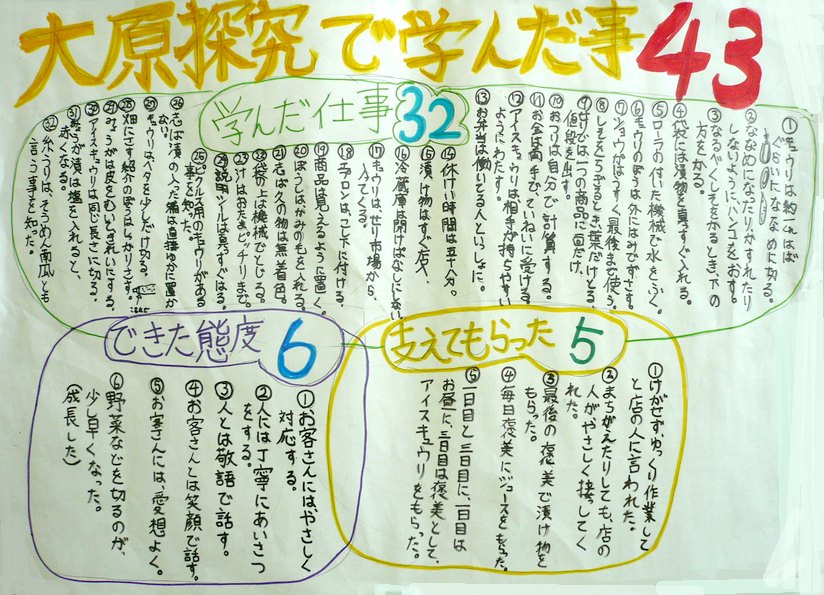 大原探究で学んだ事 43
学んだ仕事 32
①キュウリは約これほど
ぐらいにななめに切る。
②ななめになったりかすれたり
しないようにハンコをおす。
③なるべくしそをかるとき、下の
方をかる。
④袋には漬物を真っすぐ入れる。
⑤ローラの付いた機械で水をふく。
⑥キュウリのぼうは外にはみでずさす。
⑦ショウガはうすく、最後まで使う。
値段を出す。
⑩おつりは自分で計算する。
⑪お金は両手で、ていねいに受ける。
⑫アイスキュウリは相手が持ちやすい
ようにわたす。
⑬お弁当は働いてる人といっしょに。
⑭休けい時間は五十八分。
⑮漬け物はすぐ店へ。
⑯冷蔵庫は開けぱなしにしない
⑰キュウリはせり市場から、
入ってくる。
⑱エプロンは、こし下に付ける。
⑲商品は見えるように置く。
⑳ぼうしはかみの毛を入れる。
㉑志ば久の物は無着色。
㉒袋の上は機械でとじる。
㉓汁はおたまピッチリまで。
㉔説明シールは真っすぐはる。
㉕ピクルス用のキュウリがある
事を知った。
㉖志ば漬の入った箱は直接ゆかに置か
ない。
㉗キュウリはヘタを少しだけ切る。
㉘畑にさす紹介のぼうはしっかりさす。
㉙みょうがは皮をむいときれいにする。
㉚アイスキュウリは同じ長さに切る。
赤くなる。
㉜糸うりは、そうめん南瓜とも
言う事を知った。
支えてもらった 5
①けがせずゆっくり作業して
と店の人に言われた。
②まちがえたりしても、店の
人がやさしく接してく
れた。
③最後の褒美で漬け物を
もらった。
④毎日褒美にジュースをもらった。
⑤一日目と三日目に、一日目は
お昼に、三日目は褒美として、
アイスキュウリをもらった。
できた態度 6
①お客さんにはやさしく
対応する。
②人には丁寧にあいさつ
をする。
③人とは敬語で話す。
④お客さんとは笑顔で話す。
⑤お客さんには、愛想よく。
⑥野菜などを切るのが、
少し早くなった。
(成長した)